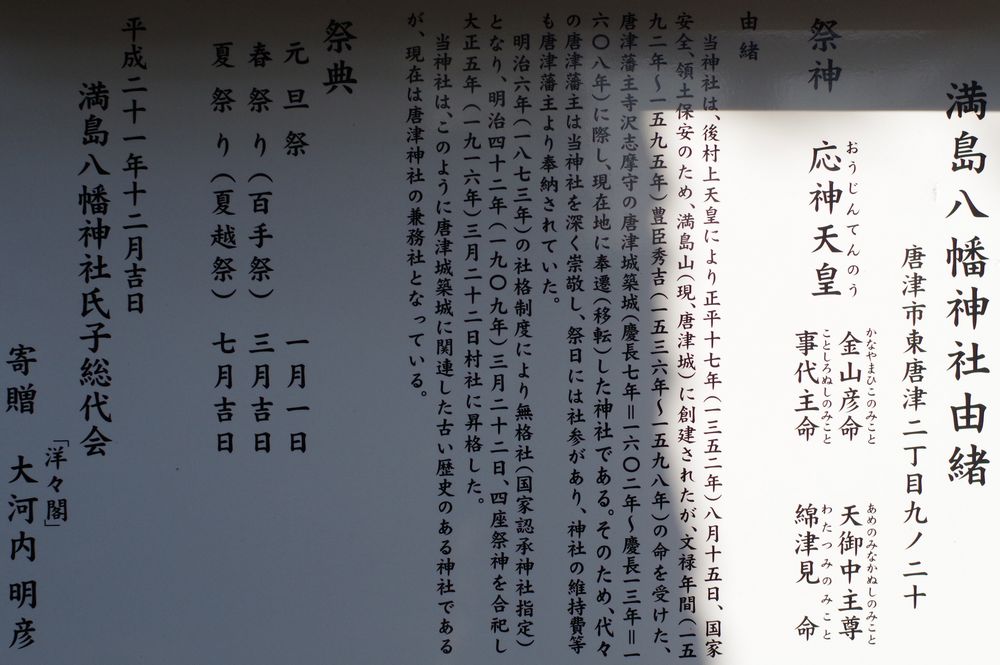 満島八幡神社由緒
唐津市東唐津二丁目九ノ二十
祭神
応神天皇
おうじんてんのう
金山彦命
かなやまひこのみこと
事代主命
ことしろぬしのみこと
天御中主尊
あめのみなかぬしのみこと
綿津見 命
わたつみのみこと
由緒
当神社は、後村上天皇により正平十七年(一三五二年)八月十五日、国家
安全、領土保安のため、満島山(現、唐津城)に創建されたが、文禄年間(一五
九二年〜一五九五年)豊臣秀吉(一五三六年〜一五九八年)の命を受けた、
唐津藩主寺沢志摩守の唐津城築城(慶長七年=一六〇二年〜慶長一三年=一
六〇八年)に際し、現在地に奉遷(移転)した神社である。そのため、代々
の唐津藩主は当神社を深く崇敬し、祭日には社参があり、神社の維持費等
も唐津藩主より奉納されていた。
明治六年(一八七三年)の社格制度により無格社(国家認承神社指定)
となり、明治四十二年(一九〇九年)三月二十二日、四座祭神を合祀し
大正五年(一九一六年)三月二十二日村社に昇格した。
当神社は、このように唐津城築城に関連した古い歴史のある神社である
が、現在は唐津神社の兼務社となっている。
祭典
元旦祭 一月一日
春祭り(百手祭) 三月吉日
夏祭り(夏越祭) 七月吉日
平成二十一年十二月吉日
満島八幡神社氏子総代会
「洋々閣」
寄贈 大河内明彦